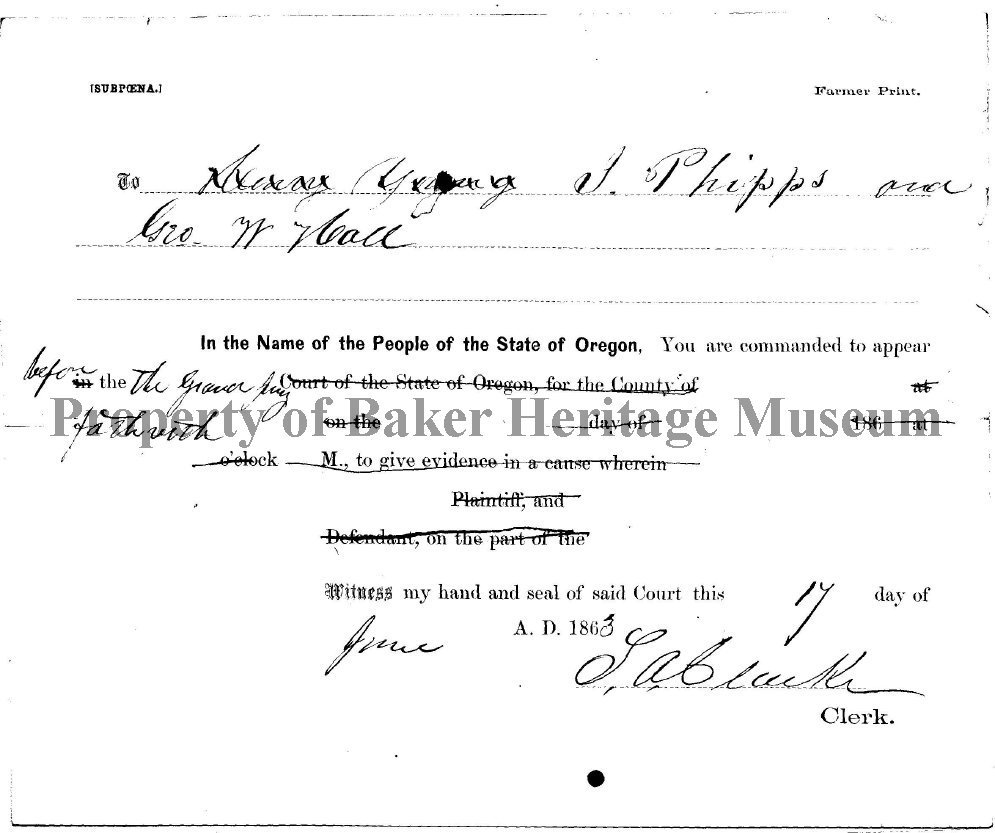 [SUBPŒNA.] Farmer Print.
To Henry Young J. Phipps and
Geo. W Hall
In the Name of the People of the State of Oregon, You are commanded to appear
before in the the Grand Jury Court of the State of Oregon, for the County of at
forthwith on the day of 186 at
o'clock M., to give evidence in a cause wherein
Plaintiff, and
Defendant, on the part of the
Witness my hand and seal of said Court this 17 day of
June A. D. 1863
S. A. Clarke
Clerk.
Property of Baker Heritage Museum